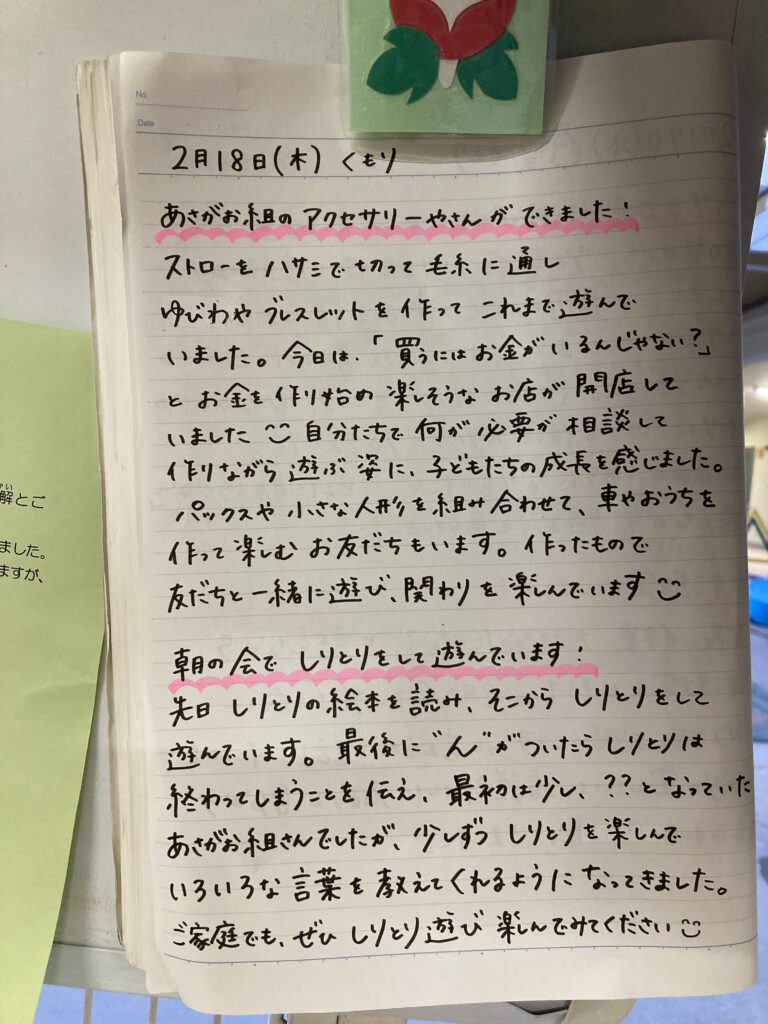 No.
Date
2月18日(木) くもり
あさがお組のアクセサリーやさんができました!
ストローをハサミで切って毛糸に通し
ゆびわやブレスレットを作ってこれまで遊んで
いました。今日は、「買うにはお金がいるんじゃない?」
とお金を作り始め楽しそうなお店が開店して
いました 自分たちで何が必要か相談して
作りながら遊ぶ姿に、子どもたちの成長を感じました。
パックスや小さな人形を組み合わせて、車やおうちを
作って楽しむお友だちもいます。作ったもので
友だちと一緒に遊び、関わりを楽しんでいます
朝の会でしりとりをして遊んでいます!
先日しりとりの絵本を読み、そこからしりとりをして
遊んでいます。最後に"ん"がついたらしりとりは
終わってしまうことを伝え、最初は少し、??となっていた
あさがお組さんでしたが、少しずつしりとりを楽しんで
いろいろな言葉を教えてくれるようになってきました。
ご家庭でも、ぜひしりとり遊び楽しんでみてください
解とご
ました。
ますが、